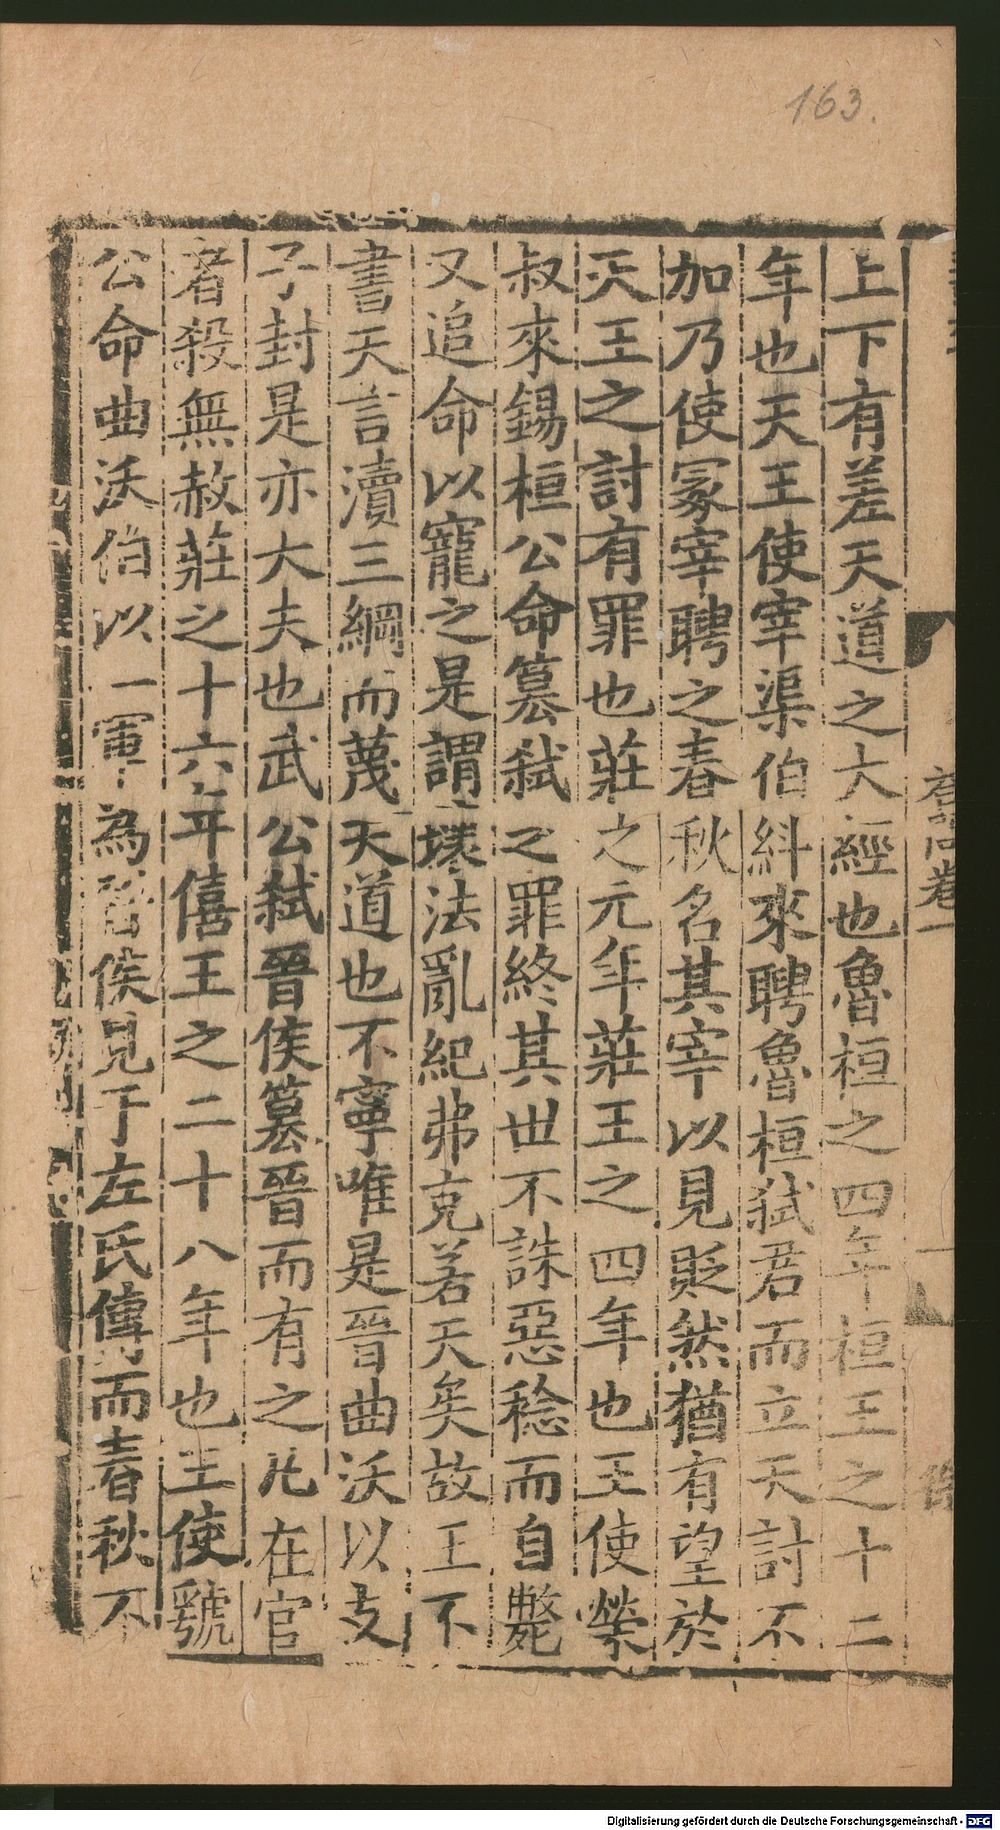 163.
上下有差天道之大經也魯桓之四年桓王之十二
年也天王使宰渠伯糾來聘魯桓弑君而立天討不
加乃使冢宰聘之春秋名其宰以見貶然猶有望於
天王之討有罪也莊之元年莊王之四年也王使榮
叔來錫桓公命篡弑之罪終其世不誅惡稔而自斃
又追命以寵之是謂壊法亂紀弗克若天矣故王不
書天言瀆三綱而蔑天道也不寧唯是晉曲沃以支
子封是亦大夫也武公弑晉侯篡晉而有之凡在官
者殺無赦莊之十六年僖王之二十八年也王使虢
公命曲沃伯以一軍為晉侯見于左氏傳而春秋不
卷一
Digitalisierung gefördert durch die Deutsche Forschungsgemeinschaft - DFG